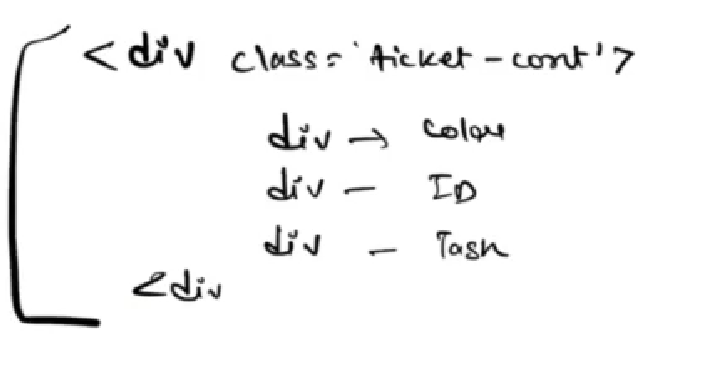 <div class='ticket-cont'>
div → Colour
div - ID
div - Task
<div